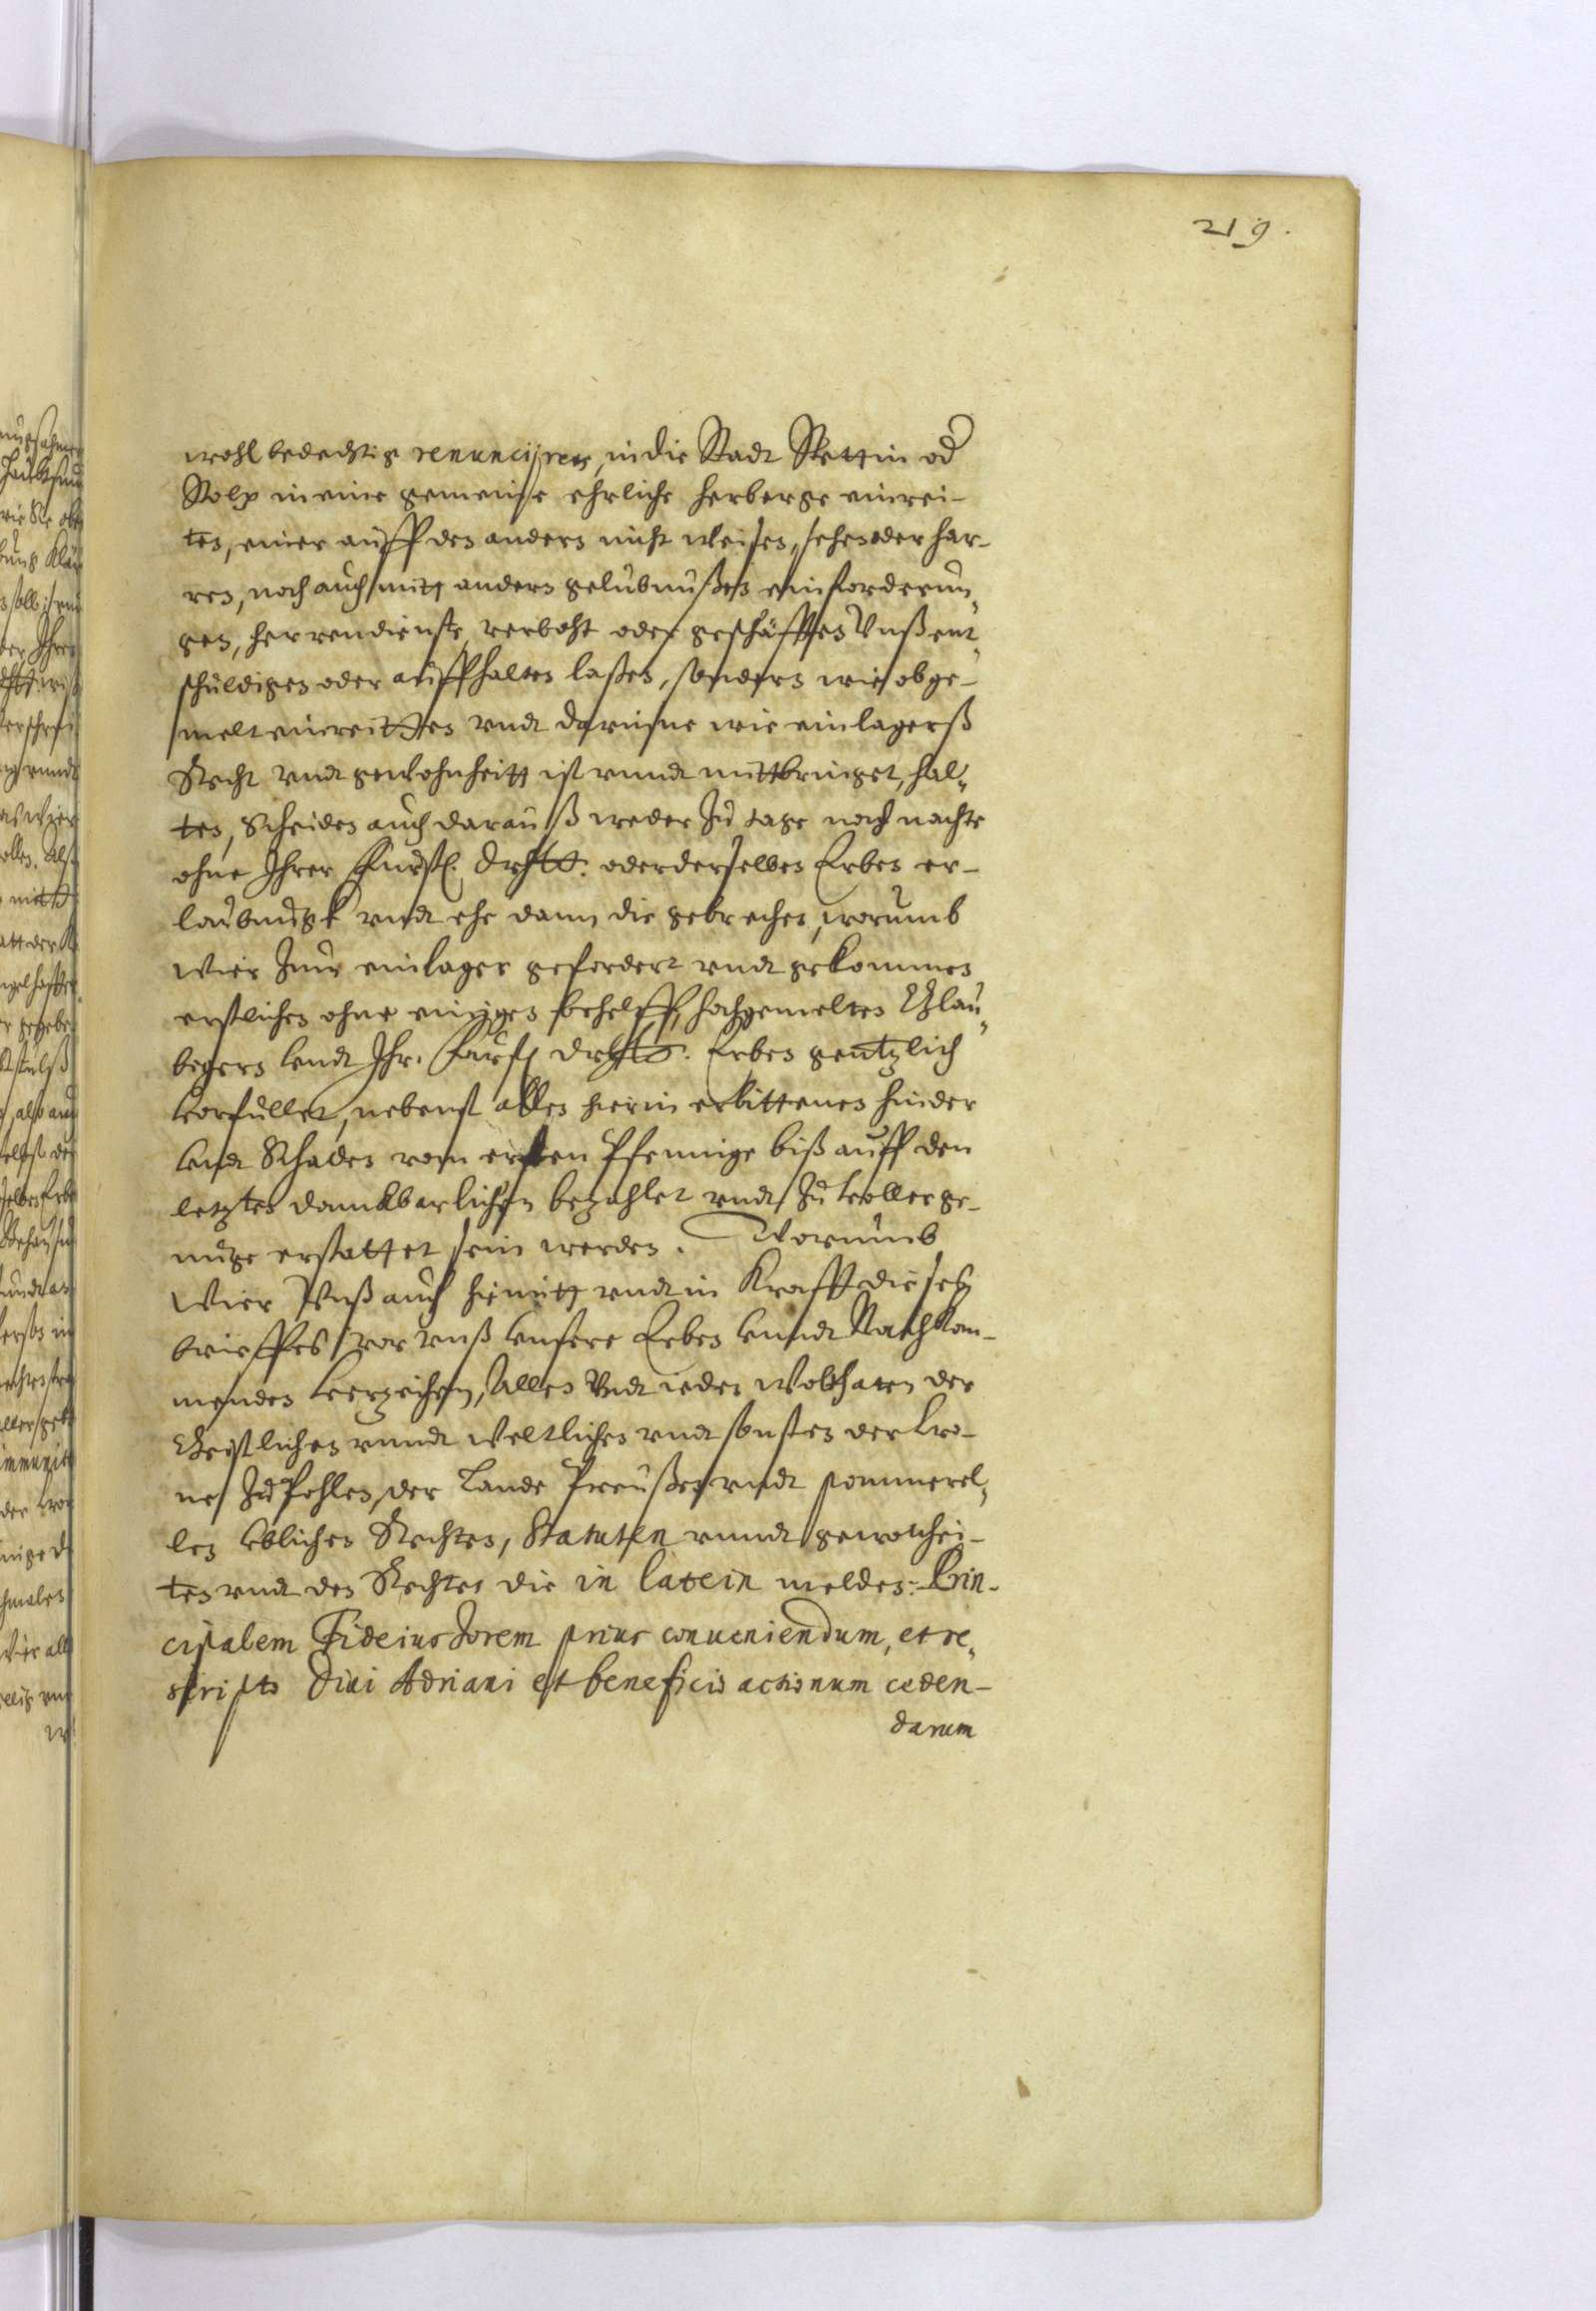 219.
wohl bedechtig renuncijren, in die Stadt Stettin od
Stolp in eine gemeine ehrliche herberge einrei-
ten, einer auff den andern nicht weisen, sehen oder har-
ren, noch auch mitt andern gelubnußen einforderun-
gen, herrendienste verboht oder geschäfften Vnß ent-
schuldigen oder auffhalten laßen, sondern wie obge-
melt einreitten vndt darinne wie einlagerß
Recht vndt gewohnheitt ist vnndt mittbringet, hal-
ten, Scheiden auch darauß weder zu tage noch nachte
ohne Ihrer Fürstl. drhltt. oder derselben Erben er-
laubnußk vndt ehe dann die gebrechen, worumb
Wier zum einlager gefordert vndt gekommen
erstlichen ohne einigen behelff, hochgemelten Glau-
bigern vndt Ihr. Fürstl drhltt. Erben gentzlich
vorfullet, nebenst allen hierin erlittenen hinder
vndt Schaden vom ersten Pfennige biß auff den
letzten danckbarlichen bezahlet vndt zu voller ge-
nuge erstattet sein werden. Worumb
Wier Vnß auch hiemitt vndt in Krafft dieseß
brieffes vor vnß vnsere Erben vnndt Nachkom-
menden verzeihen, Allen Vndt ieden Wolthaten der
Geistlichen vnndt Weltlichen vndt sonsten der Cro-
ne zu Pohlen der Lande Preußen vndt pommerel-
len ublichen Rechten, Statuten vnndt gewohnhei-
ten vndt den Rechten die in latein melden: Prin-
cipalem Fideiussorem prius conueniendum, et re-
scripto Diui Adriani et beneficio actionum ceden-
darum